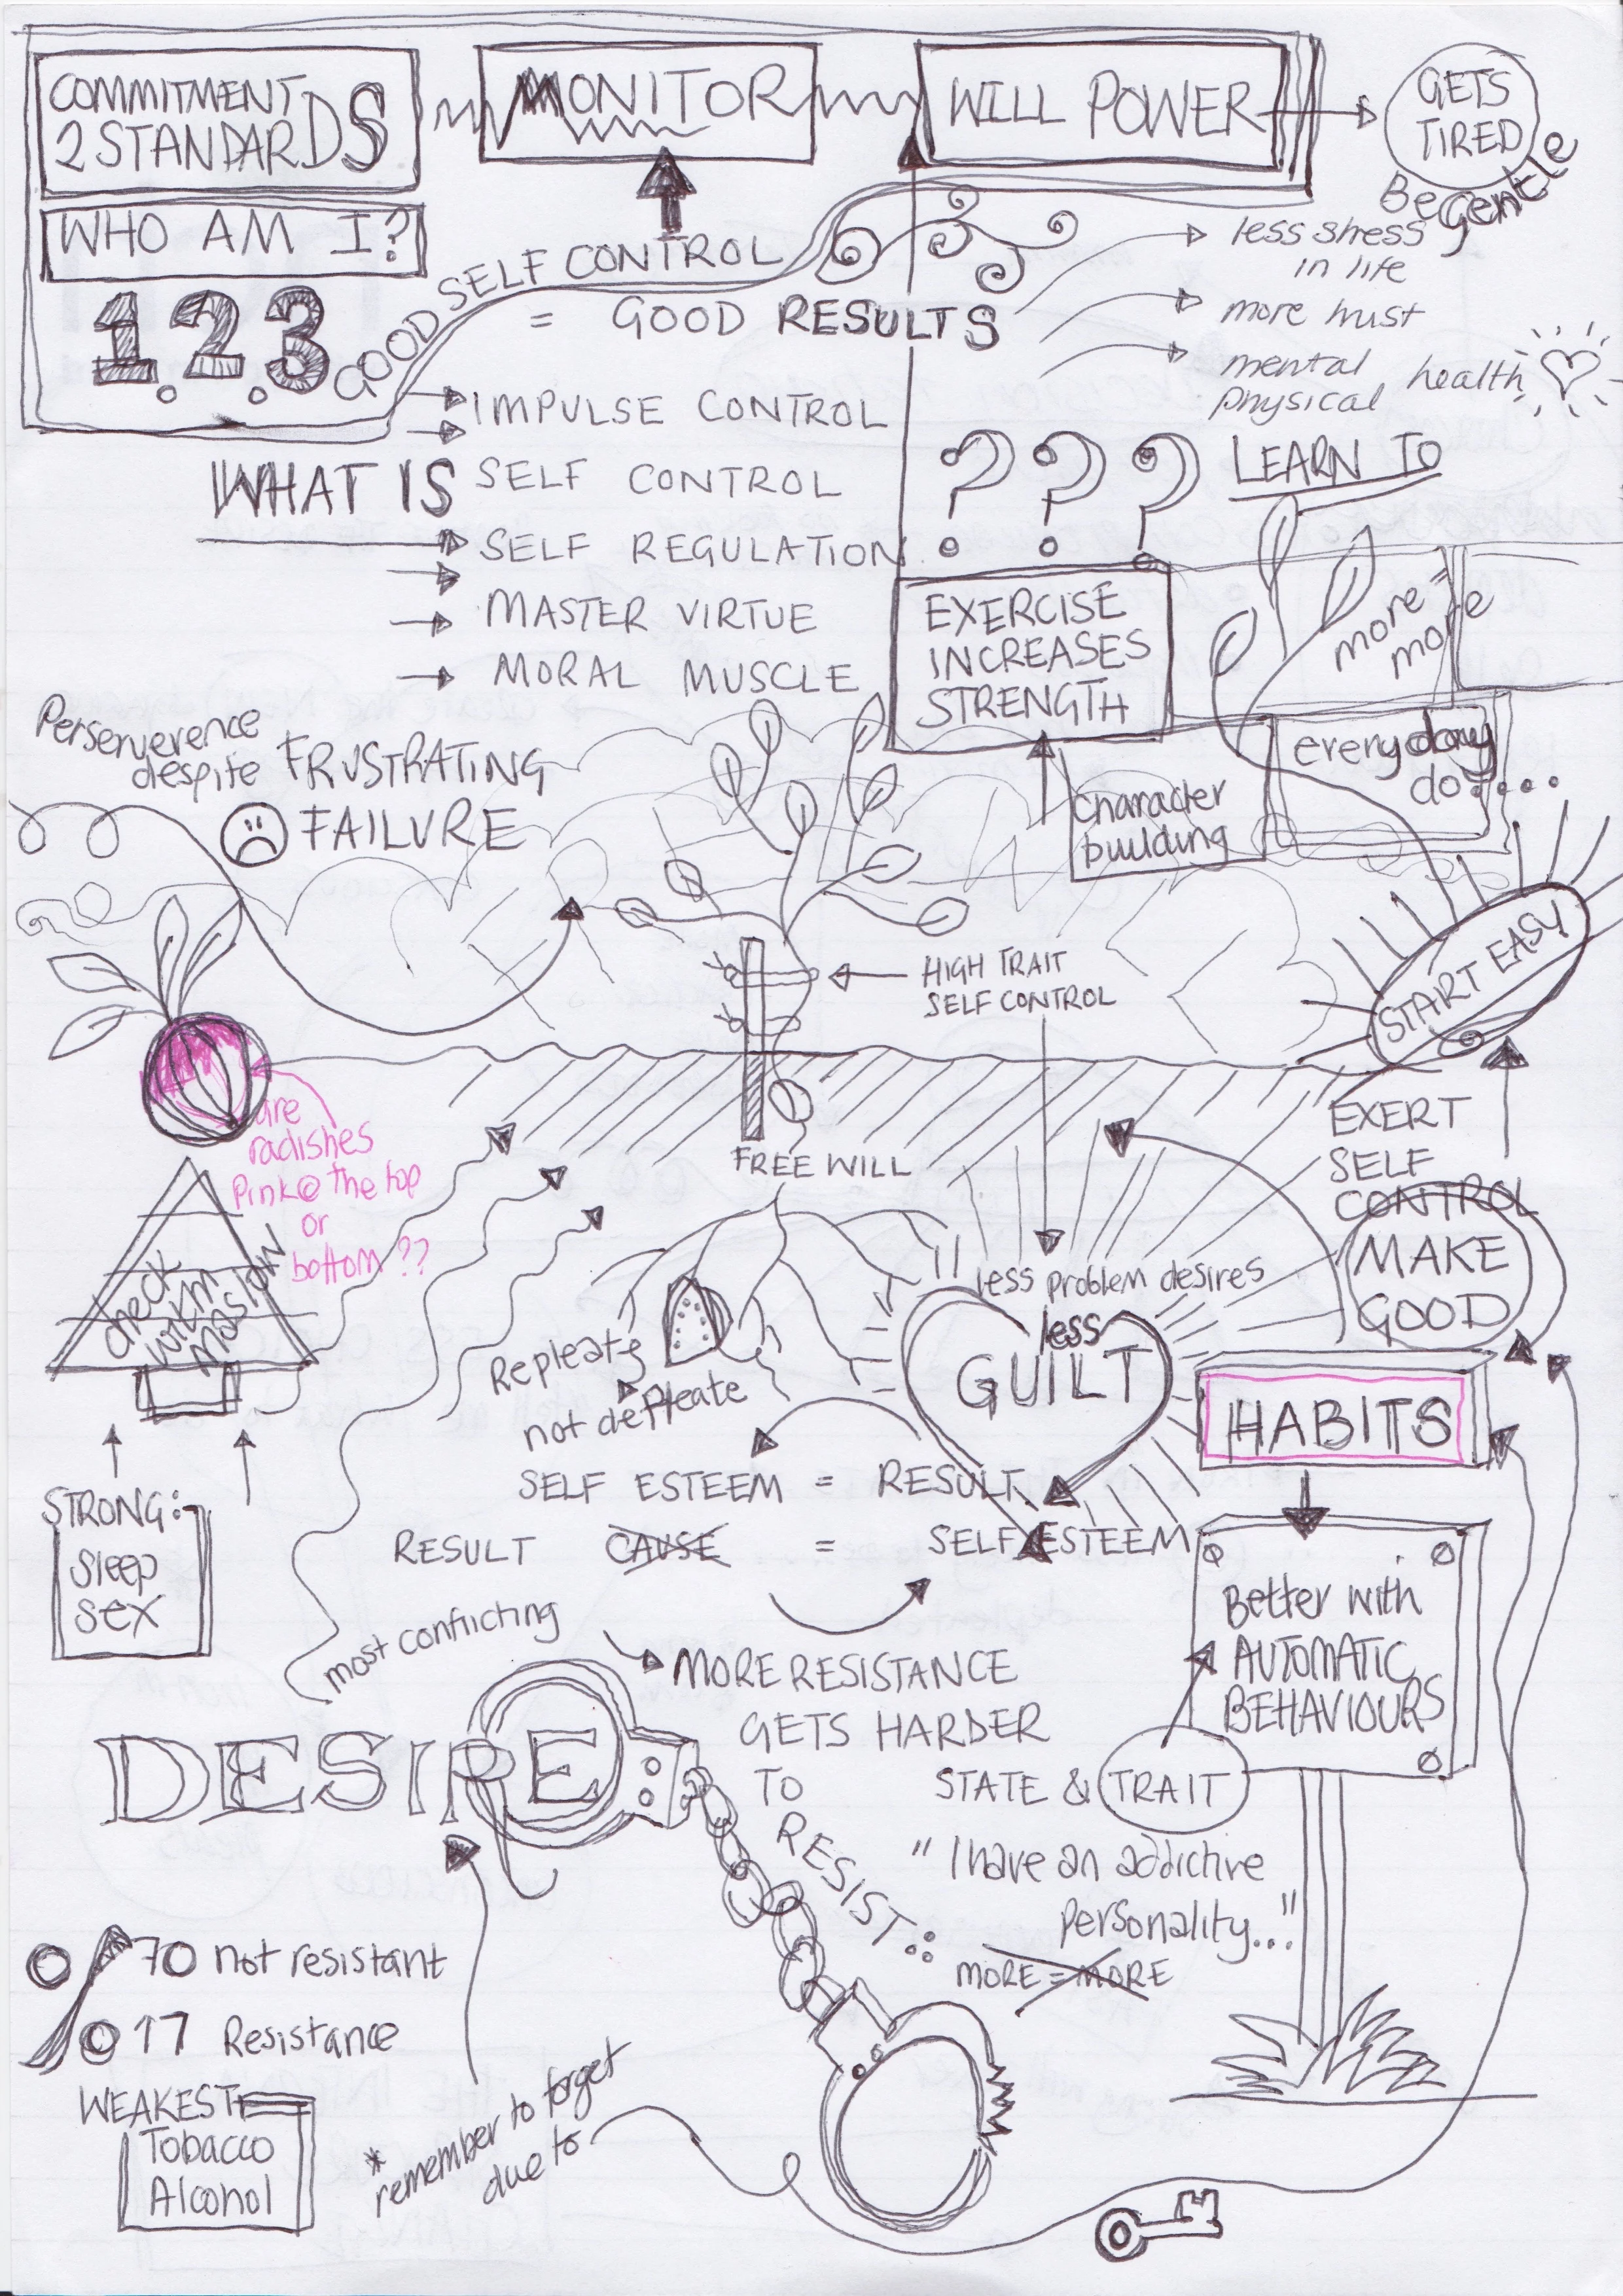 COMMITMENT
2 STANDARDS
MONITOR
WILL POWER
GETS
TIRED
Be gentle
WHO AM I?
1.2.3
GOOD SELF CONTROL
= GOOD RESULTS
less stress
in life
more trust
mental
physical health
WHAT IS
IMPULSE CONTROL
SELF CONTROL
SELF REGULATION
MASTER VIRTUE
MORAL MUSCLE
???
LEARN TO
EXERCISE
INCREASES
STRENGTH
more
more
everyday
do....
character
building
START EASY
Perserverence
despite FRUSTRATING
FAILURE
HIGH TRAIT
SELF CONTROL
FREE WILL
are
radishes
pink @ the top
or
bottom ??
check
work in
maslow
EXERT
SELF
CONTROL
MAKE
GOOD
HABITS
less problem desires
less
GUILT
Repleate
not depleate
SELF ESTEEM = RESULT
RESULT CAUSE = SELF ESTEEM
STRONG:-
Sleep
Sex
Better with
AUTOMATIC
BEHAVIOURS
most conflicting
MORE RESISTANCE
GETS HARDER
TO
RESIST:
DESIRE
STATE & TRAIT
"I have an addictive
personality..."
MORE = MORE
70 not resistant
17 Resistance
WEAKEST
Tobacco
Alcohol
* remember to forget
due to